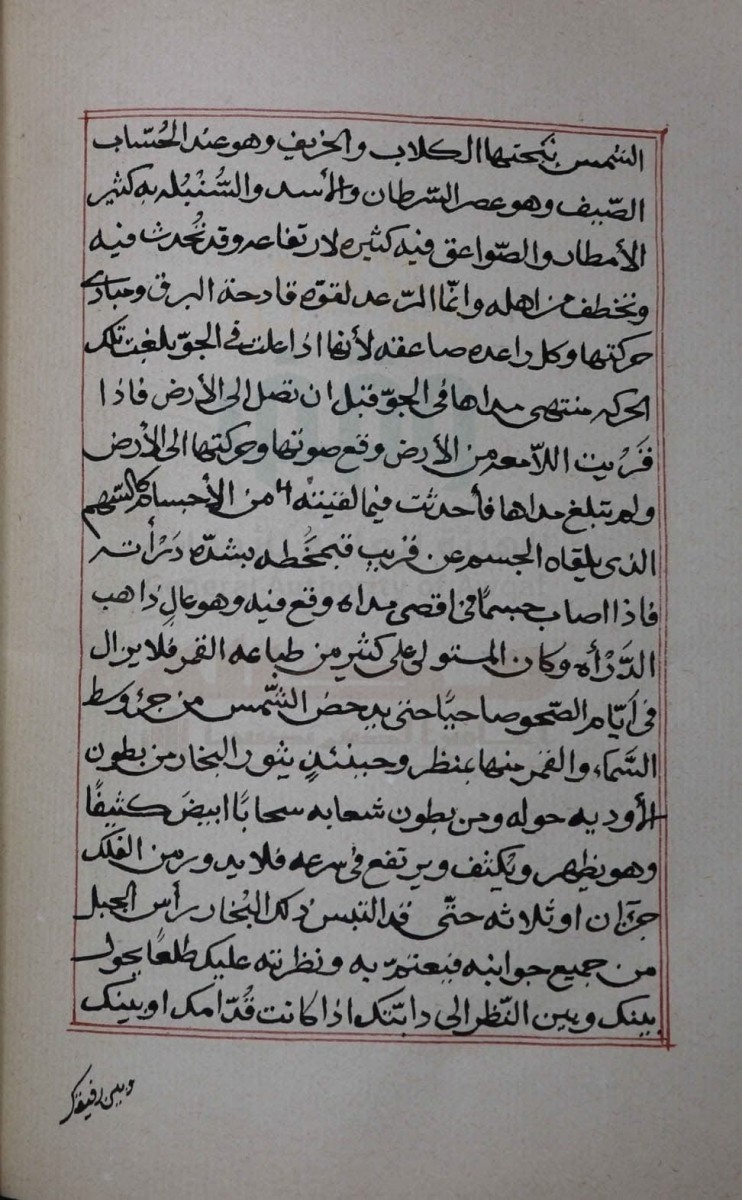 الشمس نكحتها الكلاب والخريف وهو عند الحُسّاب
الصّيف وهو عصر السّرطان والأسد والسُّنْبله به كثير
الأمطار والصّواعق فيه كثيره لارتفاعه وقد تُحدث فيه
وتخطف من اهله وانّما الرّعد لقوّه قادحة البرق ومبادى
حركتها وكل راعده صاعقه لأنها اذا علت فى الجوّ بلغت تلك
الحركه منتهى مداها فى الجوّ قبل ان تصل الى الأرض فاذا
قَرُبت اللاّمعه من الأرض وقع صوتها وحركتها الى الأرض
ولم تبلغ مداها فأحدثت فيما لقيته من الأجسام كالسّهم
الذى يلقاه الجسم عن قريب بشدّه دَرْأته
فاذا اصاب جسمًا فى اقصى مداه وقع فيه وهو عالٍ ذاهب
الدَّرْأه وكان المستولى على كثير من طباعه القمر فلا يزال
فى ايّام الصّحو صاحيًا حتى يدحض الشّمس من جزئ وسط
السَّماء والقمر منها بمنظر وحينئذٍ يثور البخار من بطون
الأوديه حوله ومن بطون شعابه سحابًا ابيضَ كثيفًا
وهو يظهر ويكثف ويرتفع فى سرعه فلا يدور من الفلك
جزءان او ثلاثه حتّى قد التبس ذلك البُخار برأس الجبل
من جميع جوانبه فيعتمّ به ونظرته عليك طلعًا يحول
بينك وبين النّظر الى دابّتك اذا كانت قُدّامك او بينك
وبين رفيقك